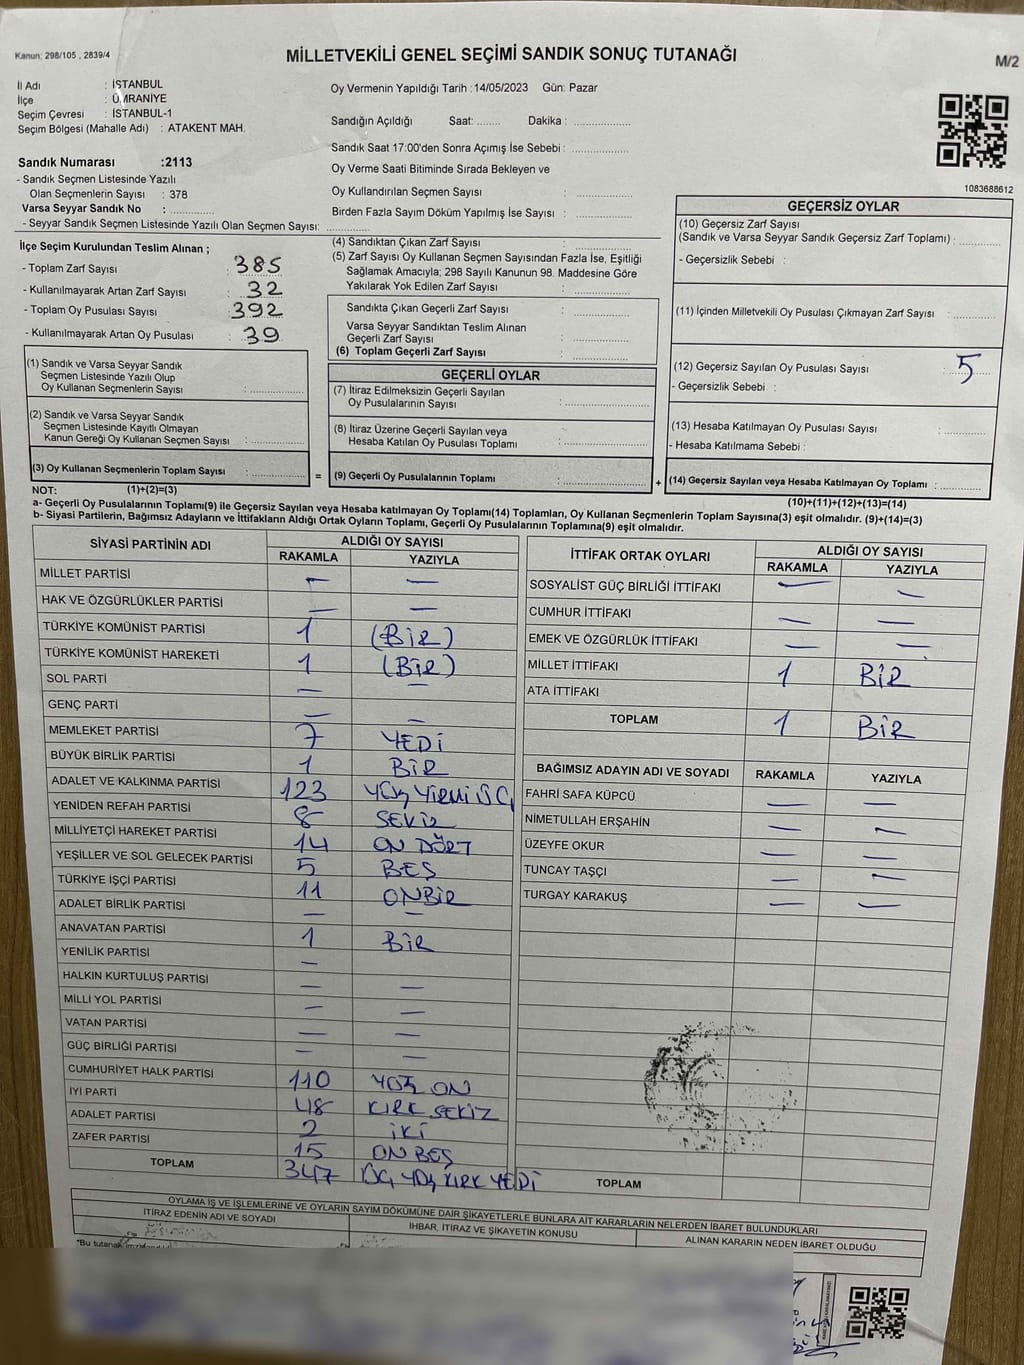 Kanun: 298/105 , 2839/4
MİLLETVEKİLİ GENEL SEÇİMİ SANDIK SONUÇ TUTANAĞI
M/2
İl Adı : İSTANBUL
İlçe : ÜMRANİYE
Seçim Çevresi : İSTANBUL-1
Seçim Bölgesi (Mahalle Adı) : ATAKENT MAH.
Sandık Numarası :2113
- Sandık Seçmen Listesinde Yazılı
Olan Seçmenlerin Sayısı : 378
Varsa Seyyar Sandık No : ............
- Seyyar Sandık Seçmen Listesinde Yazılı Olan Seçmen Sayısı: ............
Oy Vermenin Yapıldığı Tarih :14/05/2023 Gün: Pazar
Sandığın Açıldığı Saat: ........ Dakika : ................
Sandık Saat 17:00'den Sonra Açımış İse Sebebi : ................
Oy Verme Saati Bitiminde Sırada Bekleyen ve
Oy Kullandırılan Seçmen Sayısı : ................
Birden Fazla Sayım Döküm Yapılmış İse Sayısı : ................
1083688612
İlçe Seçim Kurulundan Teslim Alınan ;
- Toplam Zarf Sayısı : 385
- Kullanılmayarak Artan Zarf Sayısı : 32
- Toplam Oy Pusulası Sayısı : 392
- Kullanılmayarak Artan Oy Pusulası : 39
(1) Sandık ve Varsa Seyyar Sandık
Seçmen Listesinde Yazılı Olup
Oy Kullanan Seçmenlerin Sayısı : ............
(2) Sandık ve Varsa Seyyar Sandık
Seçmen Listesinde Kayıtlı Olmayan
Kanun Gereği Oy Kullanan Seçmen Sayısı : ............
(3) Oy Kullanan Seçmenlerin Toplam Sayısı : ............
(4) Sandıktan Çıkan Zarf Sayısı : ............
(5) Zarf Sayısı Oy Kullanan Seçmen Sayısından Fazla İse, Eşitliği
Sağlamak Amacıyla; 298 Sayılı Kanunun 98. Maddesine Göre
Yakılarak Yok Edilen Zarf Sayısı : ............
Sandıkta Çıkan Geçerli Zarf Sayısı : ............
Varsa Seyyar Sandıktan Teslim Alınan
Geçerli Zarf Sayısı : ............
(6) Toplam Geçerli Zarf Sayısı : ............
GEÇERLİ OYLAR
(7) İtiraz Edilmeksizin Geçerli Sayılan
Oy Pusulalarının Sayısı : ............
(8) İtiraz Üzerine Geçerli Sayılan veya
Hesaba Katılan Oy Pusulası Toplamı : ............
= (9) Geçerli Oy Pusulalarının Toplamı : ............
GEÇERSİZ OYLAR
(10) Geçersiz Zarf Sayısı
(Sandık ve Varsa Seyyar Sandık Geçersiz Zarf Toplamı) : ............
- Geçersizlik Sebebi :
(11) İçinden Milletvekili Oy Pusulası Çıkmayan Zarf Sayısı : ............
(12) Geçersiz Sayılan Oy Pusulası Sayısı : 5
- Geçersizlik Sebebi :
(13) Hesaba Katılmayan Oy Pusulası Sayısı : ............
- Hesaba Katılmama Sebebi :
+ (14) Geçersiz Sayılan veya Hesaba Katılmayan Oy Toplamı : ............
NOT: (1)+(2)=(3)
(10)+(11)+(12)+(13)=(14)
a- Geçerli Oy Pusulalarının Toplamı(9) ile Geçersiz Sayılan veya Hesaba katılmayan Oy Toplamı(14) Toplamları, Oy Kullanan Seçmenlerin Toplam Sayısına(3) eşit olmalıdır. (9)+(14)=(3)
b- Siyasi Partilerin, Bağımsız Adayların ve İttifakların Aldığı Ortak Oyların Toplamı, Geçerli Oy Pusulalarının Toplamına(9) eşit olmalıdır.
SİYASİ PARTİNİN ADI
ALDIĞI OY SAYISI
RAKAMLA YAZIYLA
MİLLET PARTİSİ — —
HAK VE ÖZGÜRLÜKLER PARTİSİ — —
TÜRKİYE KOMÜNİST PARTİSİ 1 (BİR)
TÜRKİYE KOMÜNİST HAREKETİ 1 (BİR)
SOL PARTİ — —
GENÇ PARTİ — —
MEMLEKET PARTİSİ 7 YEDİ
BÜYÜK BİRLİK PARTİSİ 1 BİR
ADALET VE KALKINMA PARTİSİ 123 YÜZ YİRMİ ÜÇ
YENİDEN REFAH PARTİSİ 8 SEKİZ
MİLLİYETÇİ HAREKET PARTİSİ 14 ON DÖRT
YEŞİLLER VE SOL GELECEK PARTİSİ 5 BEŞ
TÜRKİYE İŞÇİ PARTİSİ 11 ONBİR
ADALET BİRLİK PARTİSİ — —
ANAVATAN PARTİSİ 1 BİR
YENİLİK PARTİSİ —
HALKIN KURTULUŞ PARTİSİ — —
MİLLİ YOL PARTİSİ — —
VATAN PARTİSİ — —
GÜÇ BİRLİĞİ PARTİSİ — —
CUMHURİYET HALK PARTİSİ 110 YÜZ ON
İYİ PARTİ 48 KIRK SEKİZ
ADALET PARTİSİ 2 İKİ
ZAFER PARTİSİ 15 ON BEŞ
TOPLAM 347 ÜÇ YÜZ KIRK YEDİ
İTTİFAK ORTAK OYLARI
ALDIĞI OY SAYISI
RAKAMLA YAZIYLA
SOSYALİST GÜÇ BİRLİĞİ İTTİFAKI — —
CUMHUR İTTİFAKI — —
EMEK VE ÖZGÜRLÜK İTTİFAKI — —
MİLLET İTTİFAKI 1 BİR
ATA İTTİFAKI
TOPLAM 1 BİR
BAĞIMSIZ ADAYIN ADI VE SOYADI RAKAMLA YAZIYLA
FAHRİ SAFA KÜPCÜ — —
NİMETULLAH ERŞAHİN — —
ÜZEYFE OKUR — —
TUNCAY TAŞÇI — —
TURGAY KARAKUŞ — —
TOPLAM
OYLAMA İŞ VE İŞLEMLERİNE VE OYLARIN SAYIM DÖKÜMÜNE DAİR ŞİKAYETLERLE BUNLARA AİT KARARLARIN NELERDEN İBARET BULUNDUKLARI
İTİRAZ EDENİN ADI VE SOYADI
İHBAR, İTİRAZ VE ŞİKAYETİN KONUSU
ALINAN KARARIN NEDEN İBARET OLDUĞU
*Bu tutanak